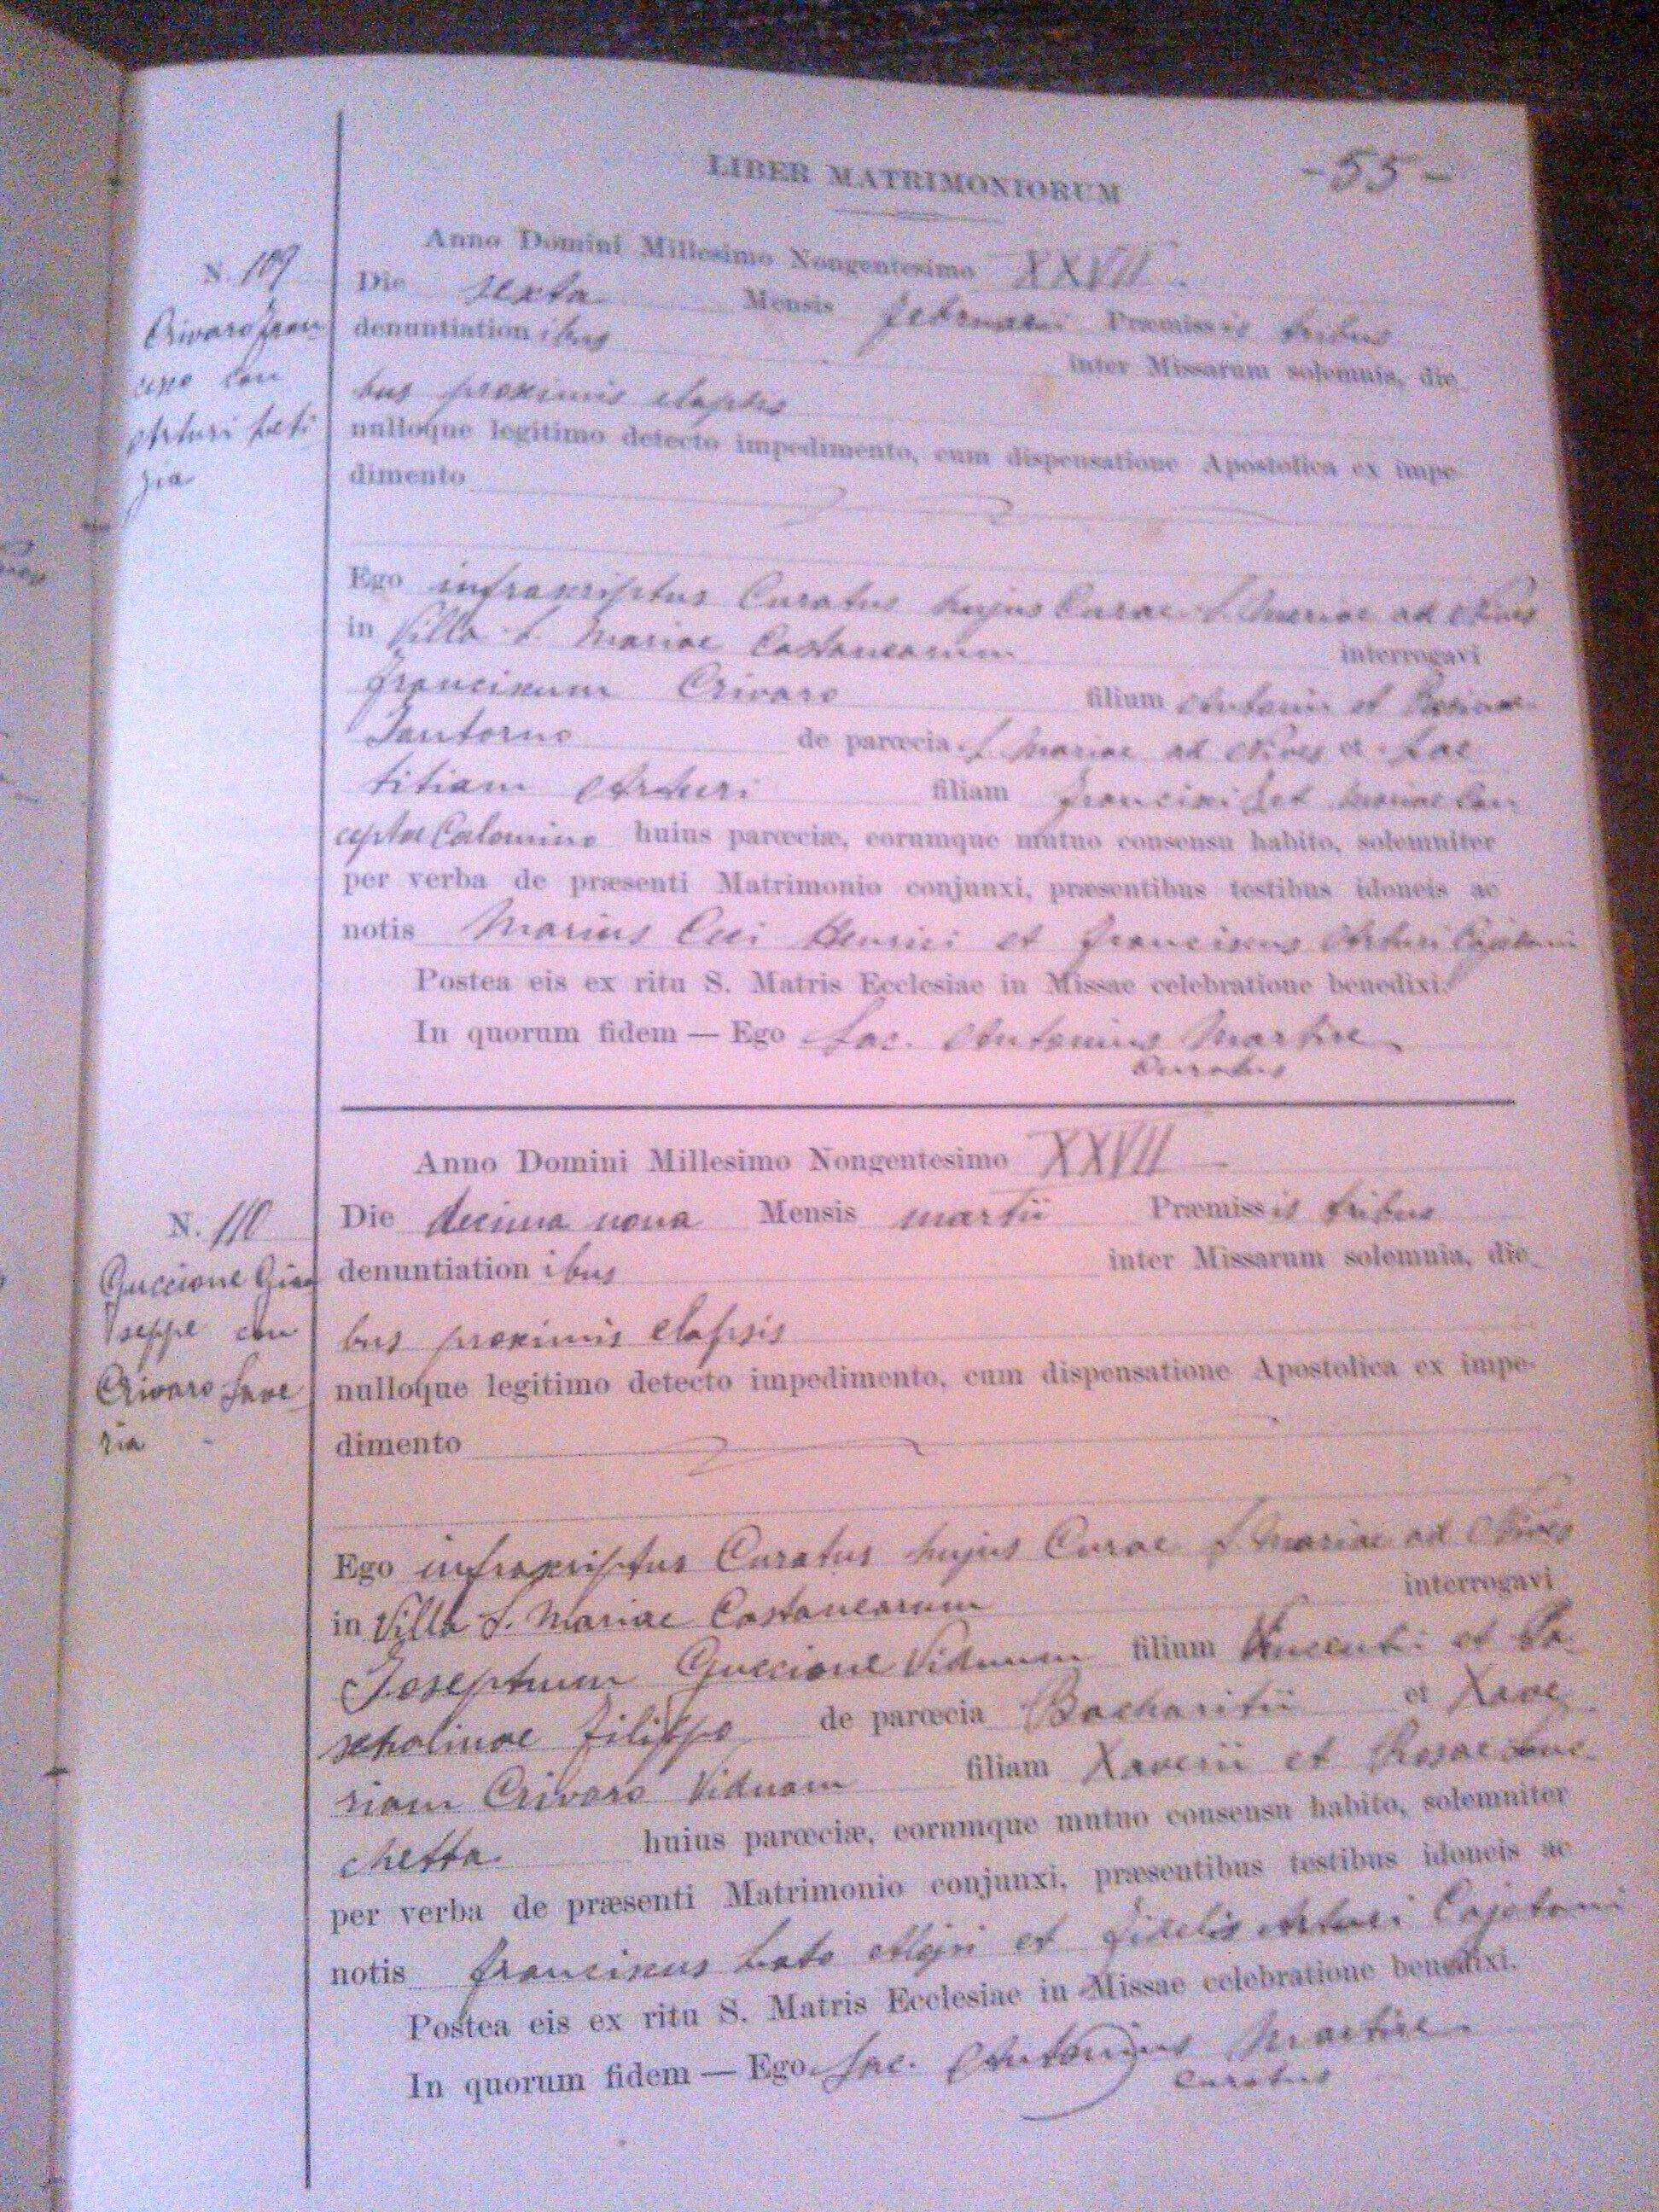 LIBER MATRIMONIORUM
- 55 -
Anno Domini Millesimo Nongentesimo XXVII.
N. 109
Crivaro Fran
con
Arturi Leti
zia
Die sexta Mensis Februarii Præmissis tribus
denuntiationibus inter Missarum solemnia, die
bus proximis elapsis
nulloque legitimo detecto impedimento, cum dispensatione Apostolica ex impe-
dimento
Ego infrascriptus Curatus hujus Curae S. Mariae ad Nives
in Villa S. Mariae Castanearum interrogavi
Crivaro filium Antonii et
Santoro de parœcia S. Mariae ad Nives et Lae
titiam Arturi filiam et Mariae Con
ceptae Colomino huius parœciæ, eorumque mutuo consensu habito, solemniter
per verba de præsenti Matrimonio conjunxi, præsentibus testibus idoneis ac
notis Marius et Arturi Cajetani
Postea eis ex ritu S. Matris Ecclesiae in Missae celebratione benedixi.
In quorum fidem — Ego Sac. Antonius Martire
Curatus
Anno Domini Millesimo Nongentesimo XXVII
N. 110
Guccione Giu
seppe con
Crivaro Save
ria
Die decima nona Mensis martii Præmissis tribus
denuntiationibus inter Missarum solemnia, die
bus proximis elapsis
nulloque legitimo detecto impedimento, cum dispensatione Apostolica ex impe-
dimento
Ego infrascriptus Curatus hujus Curae S. Mariae ad Nives
in Villa S. Mariae Castanearum interrogavi
Josephum Guccione Viduum filium Vincenti et Pa
schalinae Filippo de parœcia et Xave
riam Crivaro Viduam filiam Xaverii et Rosae
chetta huius parœciæ, eorumque mutuo consensu habito, solemniter
per verba de præsenti Matrimonio conjunxi, præsentibus testibus idoneis ac
notis et Fidelis Arturi Cajetani
Postea eis ex ritu S. Matris Ecclesiae in Missae celebratione benedixi.
In quorum fidem — Ego Sac. Antonius Martire
Curatus